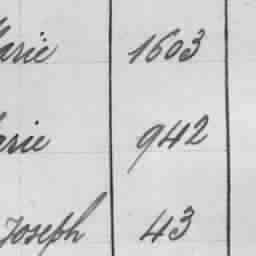 Marie 1603
Marie 942
Joseph 43